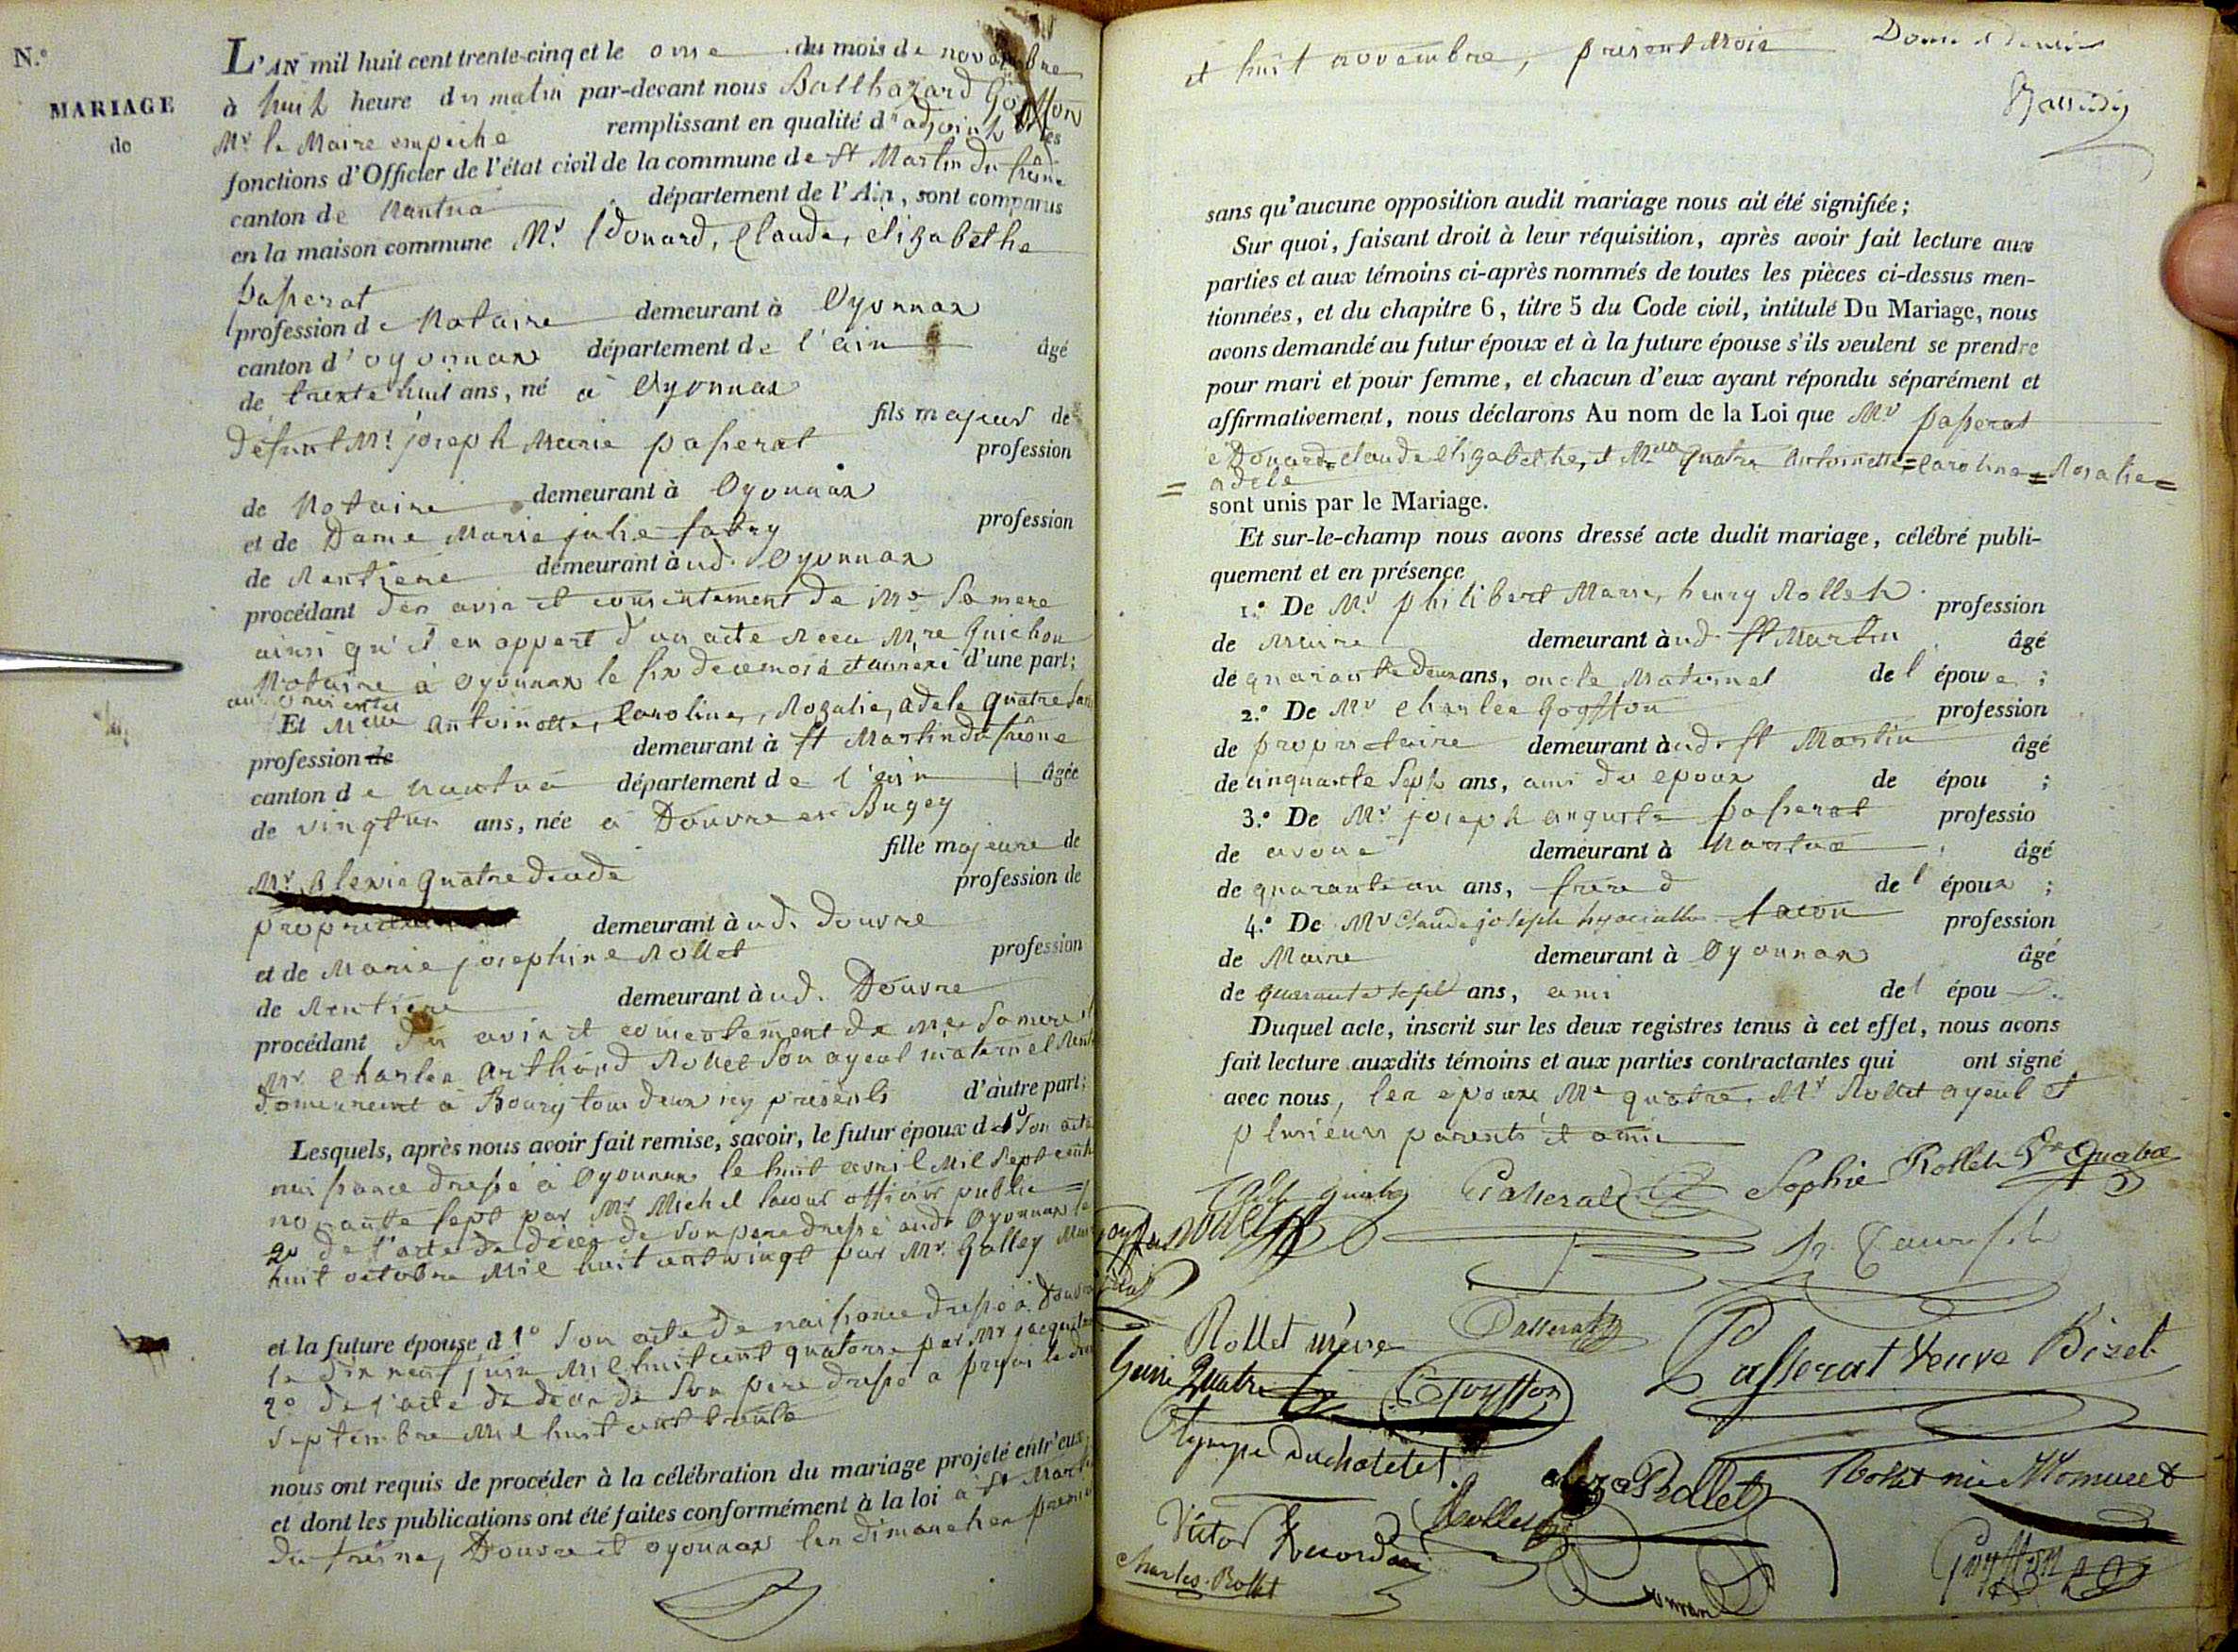 N.º
MARIAGE
de
L'AN mil huit cent trente-cinq et le onse du mois de novembre
à huit heure du matin par-devant nous Balthazard Goyffon
Mr le Maire empeché remplissant en qualité d'adjoint les
fonctions d'Officier de l'état civil de la commune de St Martin du frêsne
canton de Nantua département de l'Ain, sont comparus
en la maison commune Mr. Edouard, Claude, élizabethe
passerat
profession de Notaire demeurant à Oyonnax
canton d'oyonnax département de l'ain âgé
de trente huit ans, né à Oyonnax
fils majeur de
défunt Mr. joseph Marie passerat profession
de Notaire demeurant à Oyonnax
et de Dame Marie julie fabry profession
de Rentiere demeurant à ud. Oyonnax
procédant des avis et consentement de Me Sa mere
ainsi qu'il en appert d'un acte recu Mre Guichon
Notaire à Oyonnax le six de ce mois et annexé d'une part;
au présentes
Et Melle antoinette, Caroline, Rozalie, adele quatre sans
profession de demeurant à St Martin du frêsne
canton de nantua département de l'ain âgée
de vingt un ans, née à Douvre en Bugey
fille majeure de
Mr. alexis quatre decedé profession de
demeurant à ud. Douvre
et de Marie josephine Rollet profession
de Rentiere demeurant à ud. Douvre
procédant des avis et consentement de Me Sa mere et
Mr. Charles Rollet Son ayeul maternel
demeurant à Bourg tous deux icy présents d'autre part;
Lesquels, après nous avoir fait remise, savoir, le futur époux de 1º Son acte
naissance dressé à Oyonnax le huit avril Mil Sept cent
nonante sept par Mr Michel officier public
2º de l'acte de décès de Son pere dressé aud. Oyonnax le
huit octobre Mil huit cent vingt par Mr. Galley
et la future épouse d 1º Son acte de naissance dressé à Douvre
le dix neuf juin Mil huit cent quatorze par Mr
2º de l'acte de décès de Son pere dressé à
Septembre Mil huit cent trente
nous ont requis de procéder à la célébration du mariage projeté entr'eux
et dont les publications ont été faites conformément à la loi à St Martin
du fresne, Douvre et oyonnax les dimanches premier
et huit novembre, présent Mois
sans qu'aucune opposition audit mariage nous ait été signifiée;
Sur quoi, faisant droit à leur réquisition, après avoir fait lecture aux
parties et aux témoins ci-après nommés de toutes les pièces ci-dessus men-
tionnées, et du chapitre 6, titre 5 du Code civil, intitulé Du Mariage, nous
avons demandé au futur époux et à la future épouse s'ils veulent se prendre
pour mari et pour femme, et chacun d'eux ayant répondu séparément et
affirmativement, nous déclarons Au nom de la Loi que Mr passerat
edouard=claude elizabethe, et Melle Quatre Antoinette=Caroline=Rosalie=
= adele
sont unis par le Mariage.
Et sur-le-champ nous avons dressé acte dudit mariage, célébré publi-
quement et en présence
1.º De Mr philibert Marie, henry Rollet profession
de Maire demeurant à ud. St Martin âgé
de quarante deux ans, oncle Maternel de l'épouse;
2.º De Mr Charles Goyffon profession
de propriétaire demeurant à ud. St Martin âgé
de cinquante Sept ans, ami du epoux de épou ;
3.º De Mr. joseph auguste passerat professio
de avoué demeurant à Nantua âgé
de quarante un ans, frere d de l'époux;
4.º De Mr Claude joseph hyacinthe profession
de Maire demeurant à Oyonnax âgé
de quarante sept ans, ami de l épou
Duquel acte, inscrit sur les deux registres tenus à cet effet, nous avons
fait lecture auxdits témoins et aux parties contractantes qui ont signé
avec nous, les epoux, Me quatre, Mr Rollet ayeul et
plusieurs parents et amis
Passerat Sophie Rollet Ve Quatre
Rollet Passerat Passerat Veuve Bizet
Quatre Goyffon
Olympe Duchatelet
Rollet Rollet née
Victor Rollet
Charles Rollet Goyffon